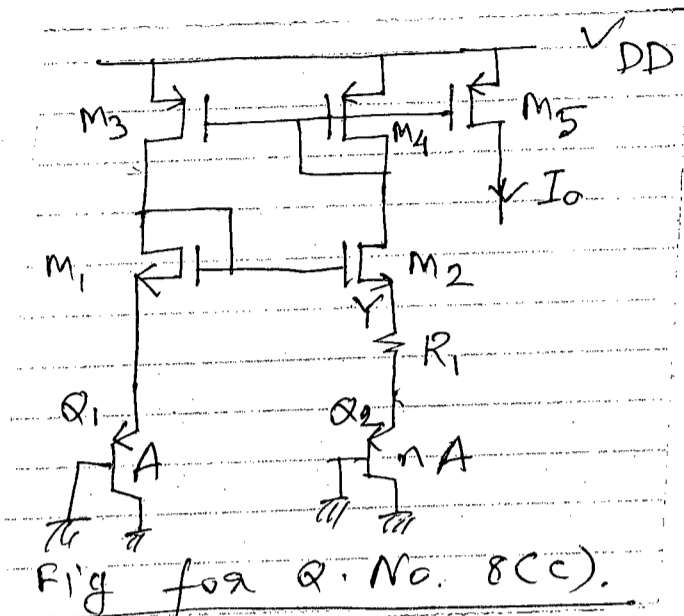 VDD
M3
M4
M5
Io
M1
M2
Y
R1
Q1
A
Q2
nA
Fig for Q. No. 8(c).